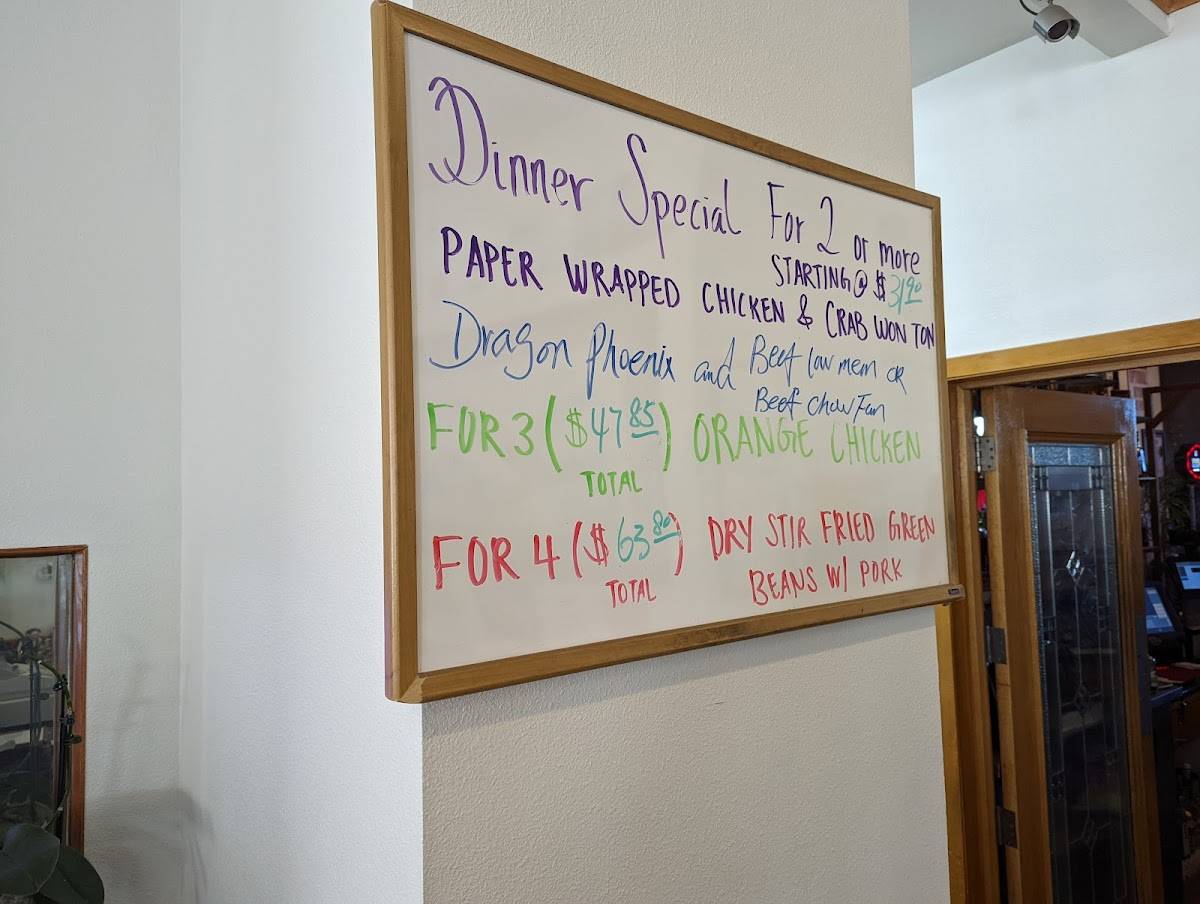 Dinner Special For 2 or more
STARTING @ $31.90
PAPER WRAPPED CHICKEN & CRAB WON TON
Dragon Phoenix and Beef low mein OR
Beef Chow Fun
FOR 3 ($47.85) ORANGE CHICKEN
TOTAL
FOR 4 ($63.80) DRY STIR FRIED GREEN
TOTAL BEANS W/ PORK